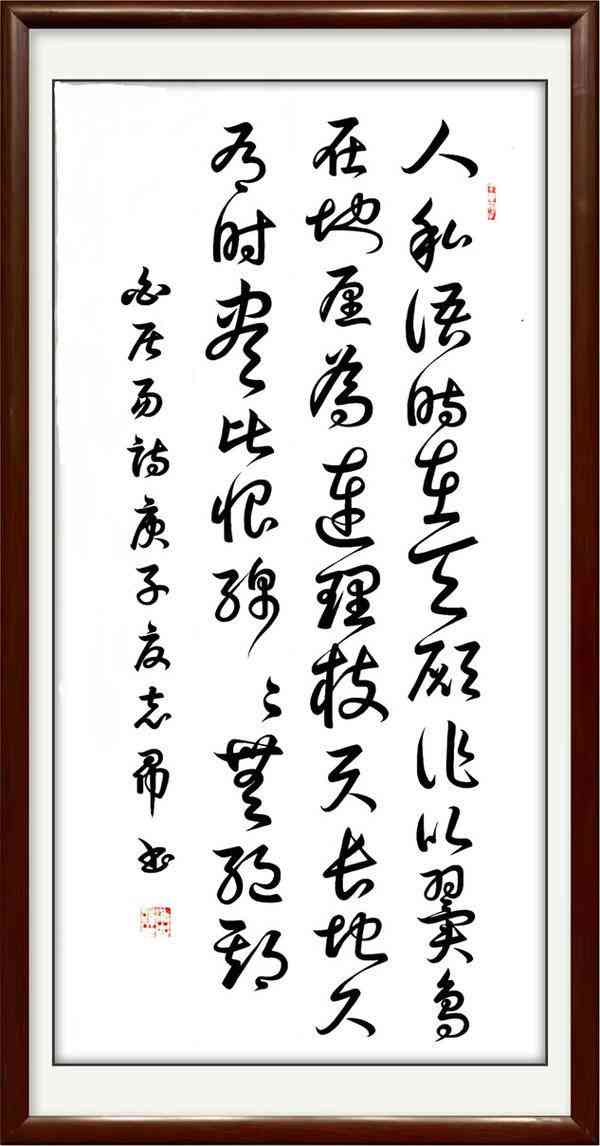 人私語時在天願作比翼鳥
在地愿為連理枝天長地久
有时盡此恨綿々無絕期
白居易詩庚子夏志書